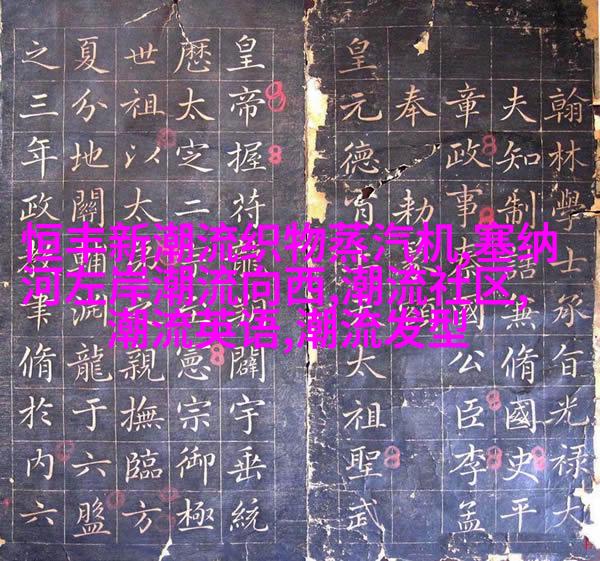 恒丰新潮流织物蒸汽机,塞纳
河左岸潮流向西,潮流社区,
潮流英语,潮流发型
翰林學士承旨光祿大
夫知制誥兼脩國史平
章政事國公臣李孟
奉勑
皇元德太祖聖武
皇帝握符闢宇垂統
厯太定二憲宗御極
世祖以太親撫臨方
夏分地關龍于六盤
之三年政聿脩於内六